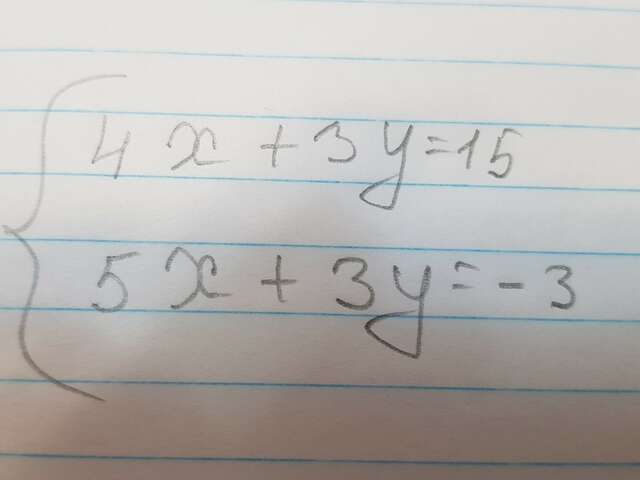 4x+3y=15
5x+3y=-3